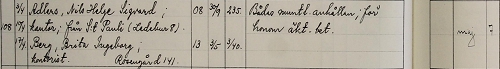 3/4 Adlers, Nils Helge Sigvard; 08 30/9 235. Bådas muntl. anhållan; för
108 17/4 kontor; från S:t Pauli (Ledebur 8). honom äkt.-bet.
17/4 Berg, Brita Ingeborg, 13 3/5 3/40.
kontorist. Rosengård 141.